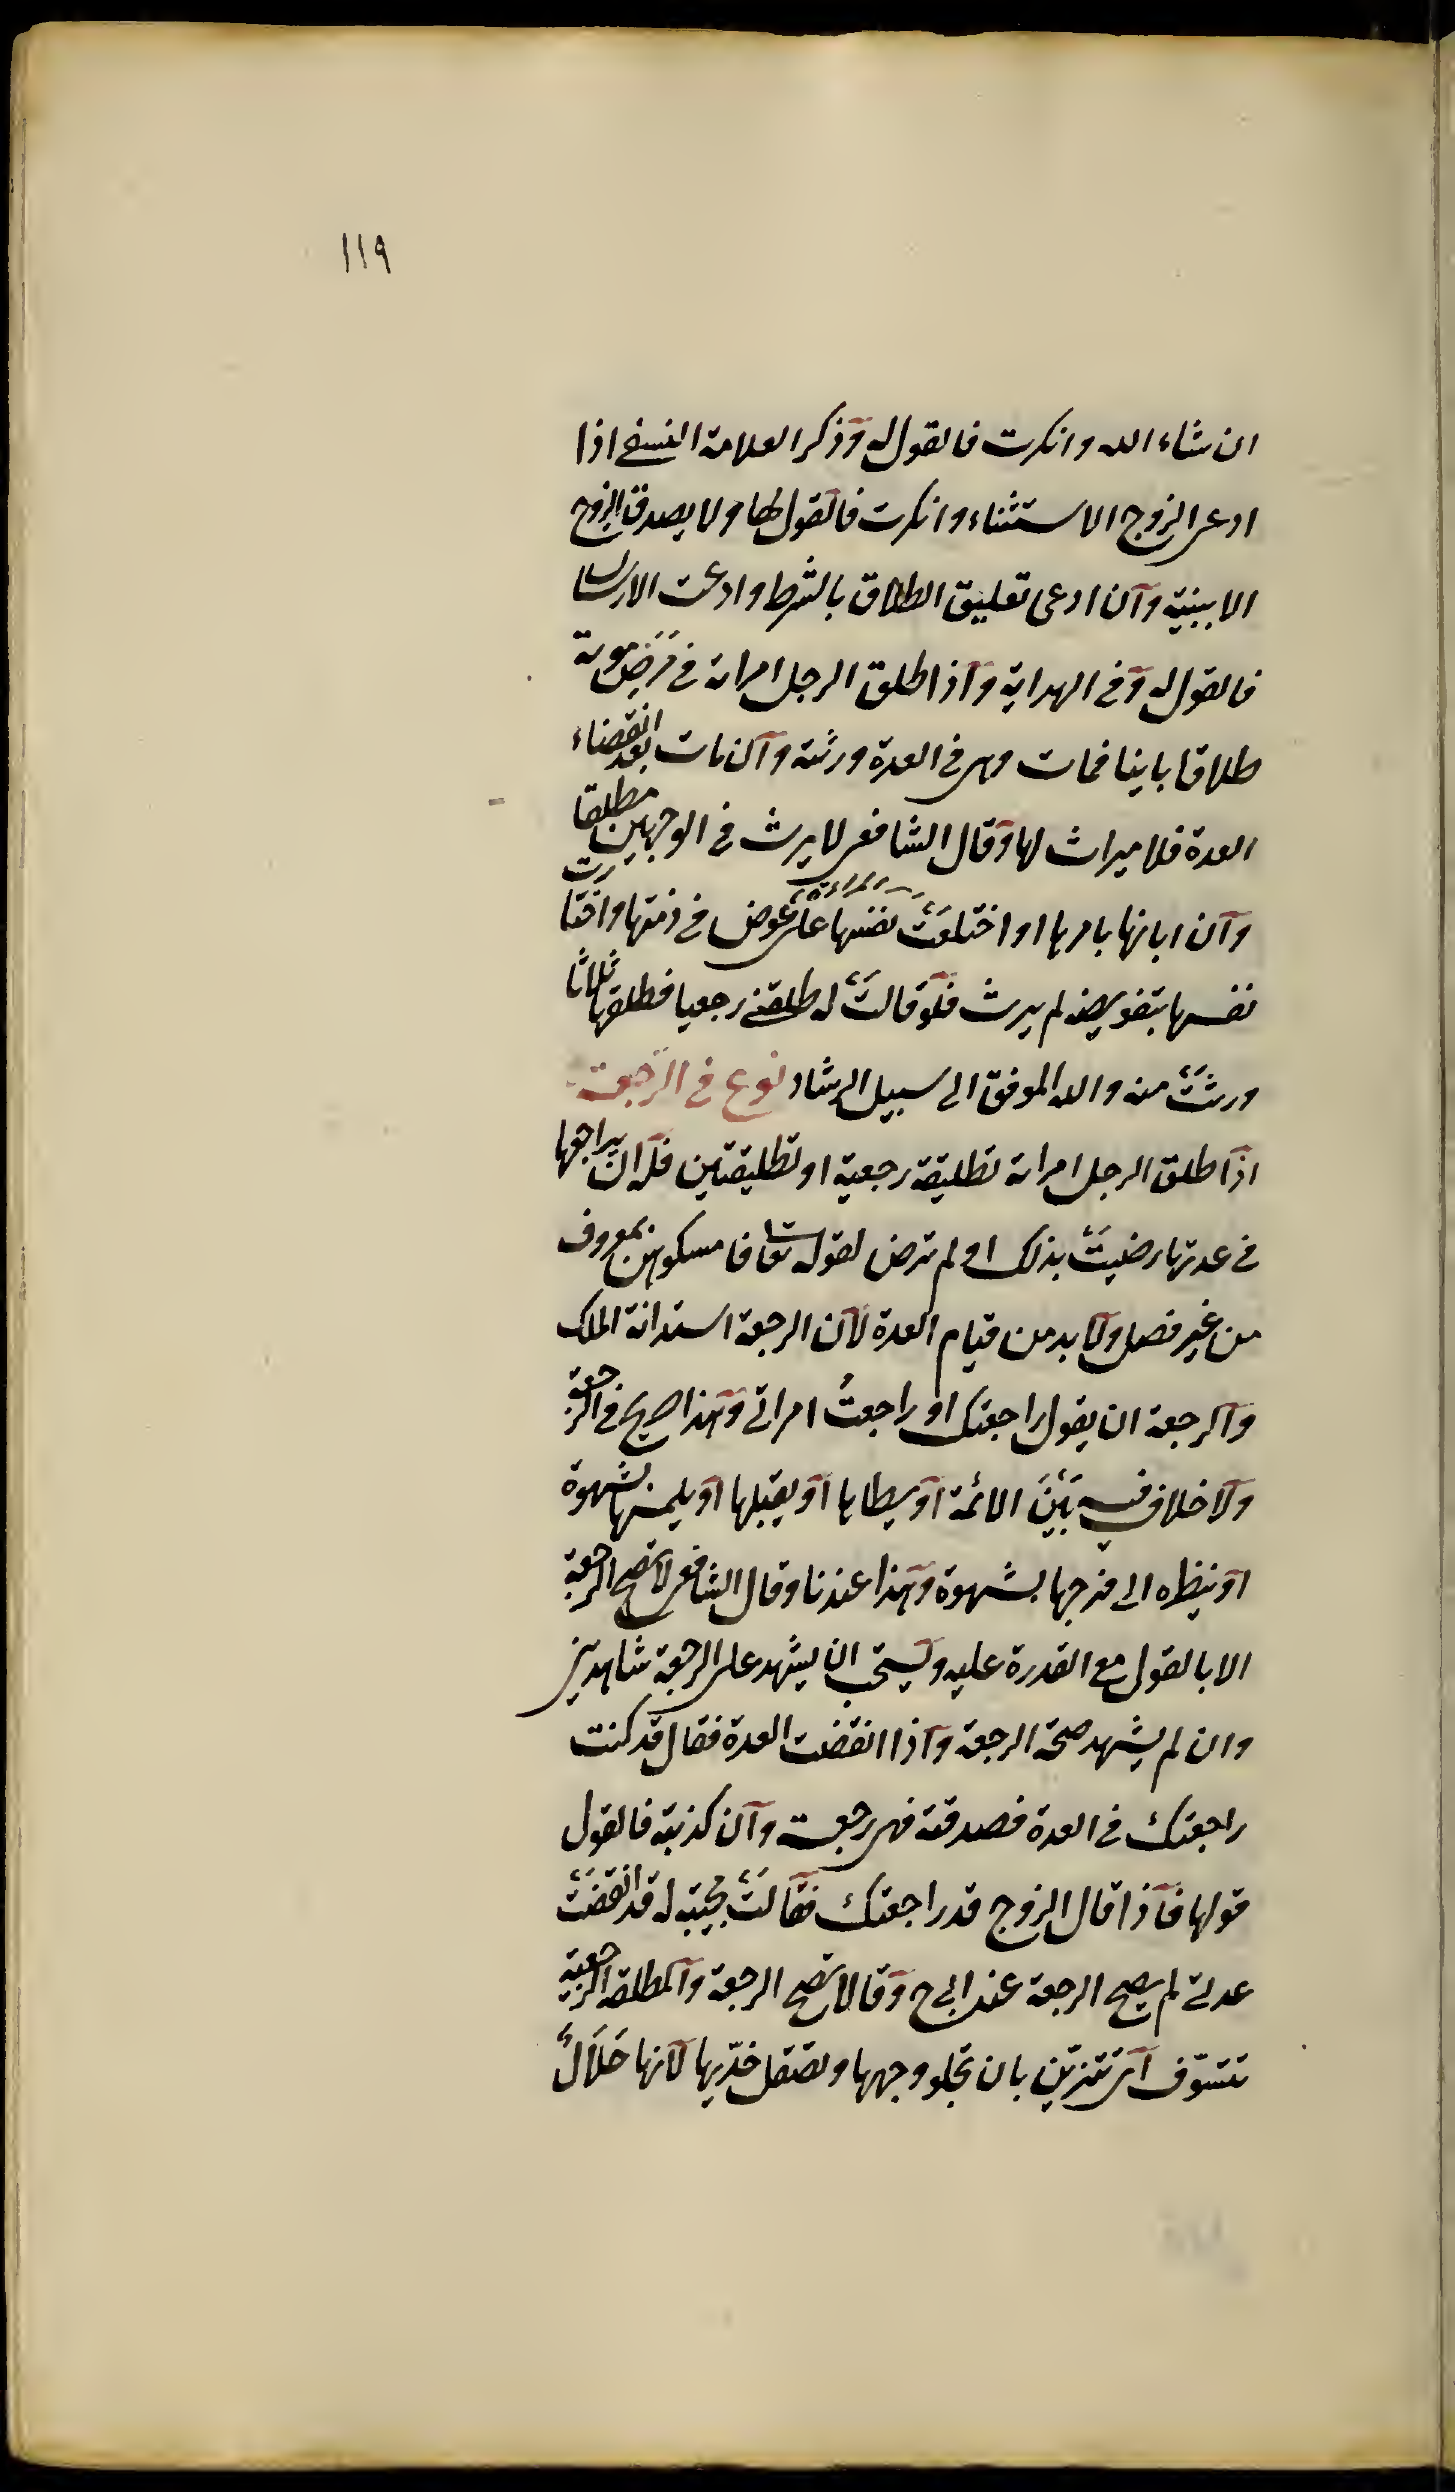 ١١٩
ان شاء الله وانكرت فالقول له وذكر العلامة النسفي اذا
ادعى الزوج الاستثناء وانكرت فالقول لها ولا يصدق الزوج
الا ببينة وان ادعى تعليق الطلاق بالشرط وادعت الارسال
فالقول له وفي الهداية واذا طلق الرجل امراته في مرض موته
طلاقا باينا فمات وهي في العدة ورثته وان مات بعد انقضاء
العدة فلا ميراث لها وقال الشافعي لا يرث في الوجهين مطلقا
وان ابانها بامرها او اختلعت نفسها على عوض في ذمتها واختارت
نفسها بتفويضه لم يرث فلو قالت له طلقني رجعيا فطلقها ثلاثا
ورثت منه والله الموفق الى سبيل الرشاد نوع في الرجعة
اذا طلق الرجل امراته تطليقة رجعية او تطليقتين فله ان يراجعها
في عدتها رضيت بذلك او لم ترض لقوله تعا فامسكوهن بمعروف
من غير فصل ولا بد من قيام العدة لان الرجعة استدامة الملك
والرجعة ان يقول راجعتك او راجعتُ امراتي وهذا صريح في الرجعة
ولا خلاف فيه بَيْنَ الائمة او يطاها او يقبلها او يلمسها بشهوة
او ينظره الى فرجها بشهوة وهذا عندنا وقال الشافعي لا تصح الرجعة
الا بالقول مع القدرة عليه ويستحب ان يشهد على الرجعة شاهدين
وان لم يشهد صحة الرجعة واذا انقضت العدة فقال قد كنت
راجعتك في العدة فصدقته فهي رجعة وان كذبته فالقول
قولها فاذا قال الزوج قد راجعتك فقالت مجيبة له قد انقضت
عدتي لم يصح الرجعة عند ابي ح وقالا تصح الرجعة والمطلقة الرجعية
تتشوّف اى تتزيّن بان تجلو وجهها وتصقل خدّيها لانها حَلَالٌ